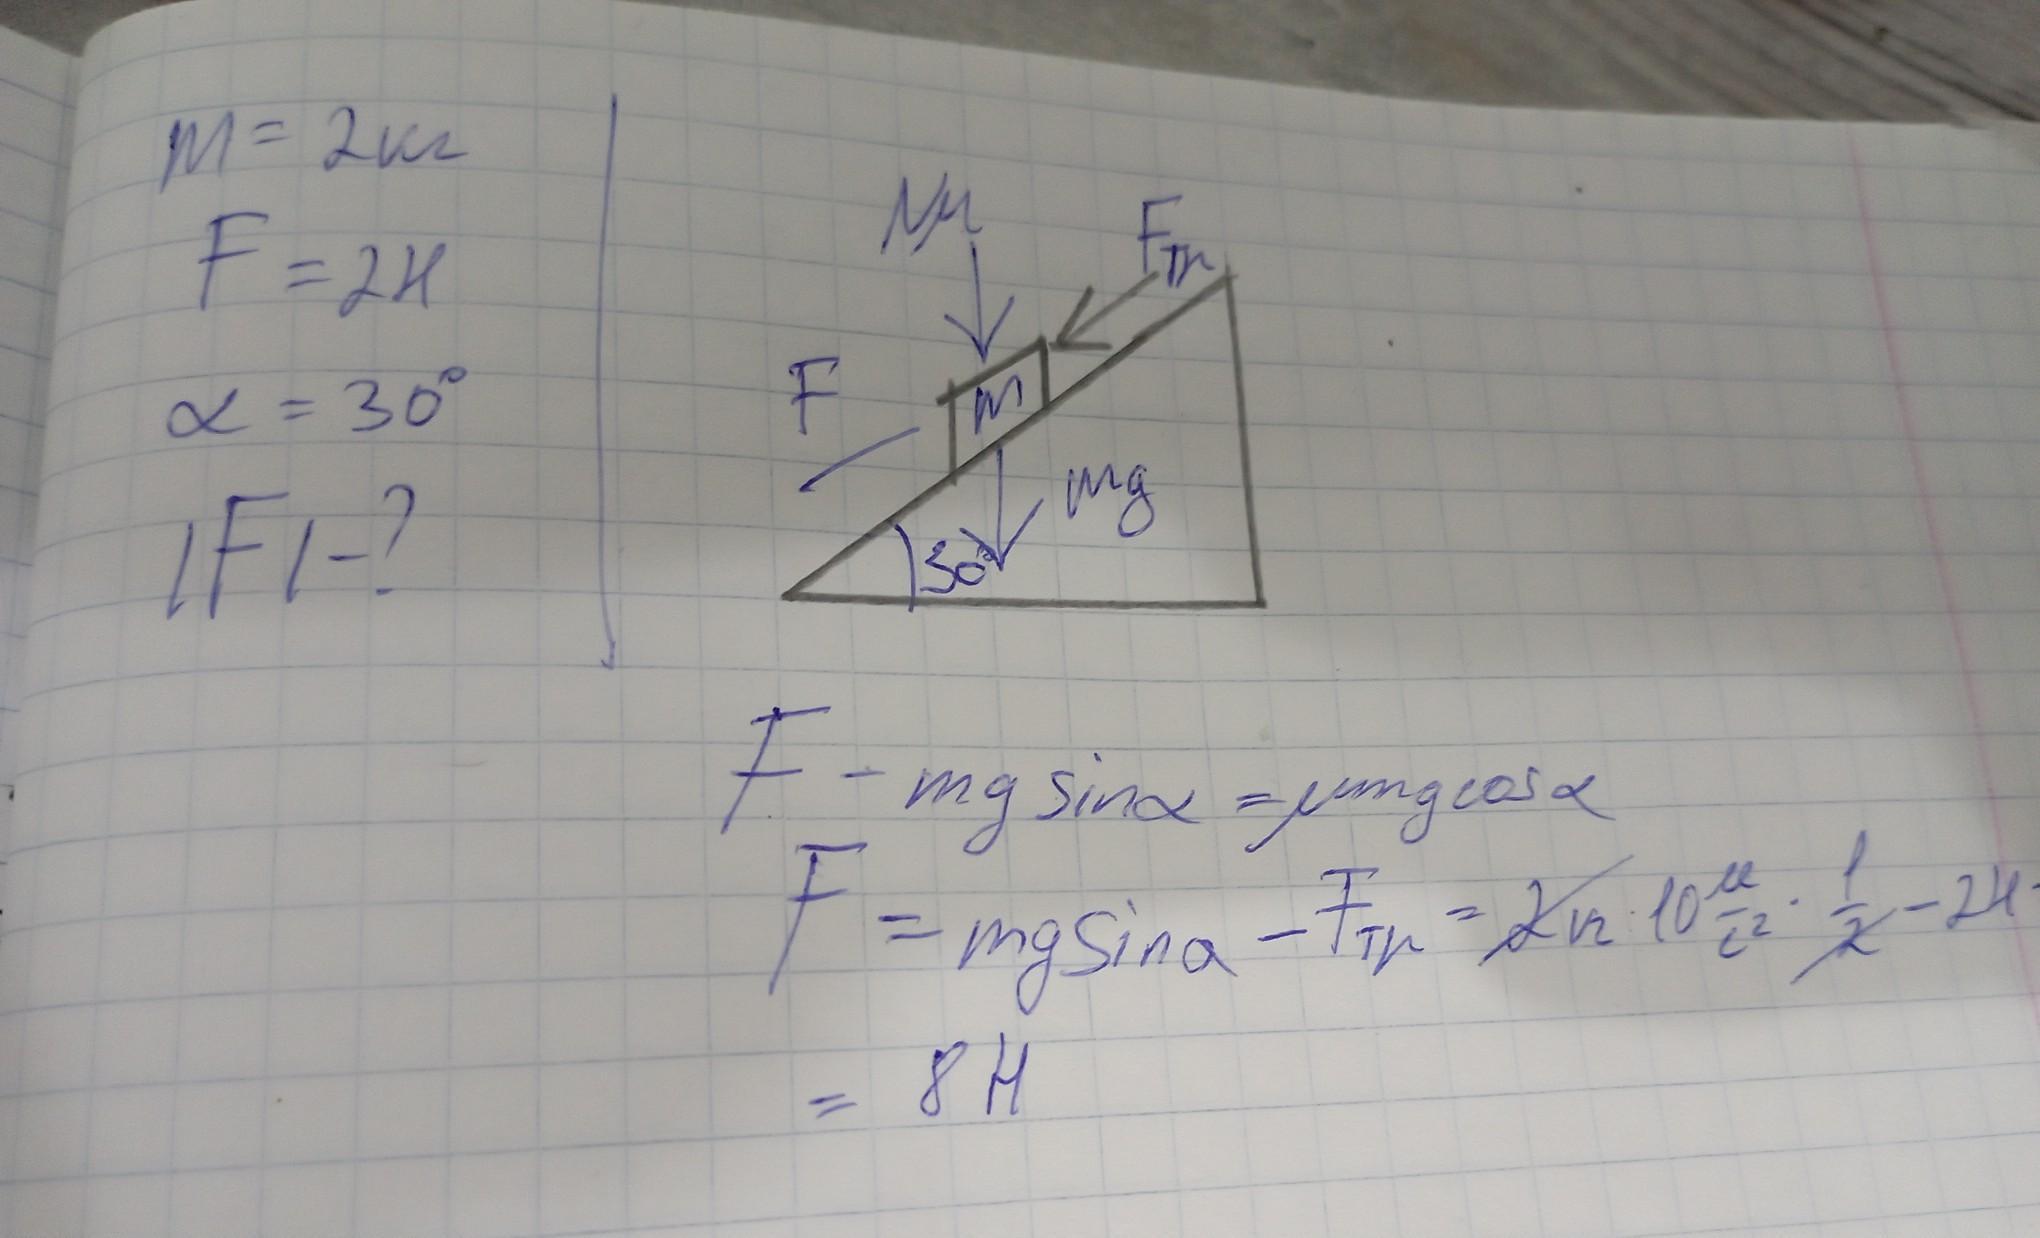 m = 2кг
F = 2Н
α = 30°
|F| - ?
Nμ
Fтр
F
m
mg
30°
F - mg sinα = μmg cosα
F = mg sinα - Fтр = 2кг · 10 м/с² · 1/2 - 2Н =
= 8Н